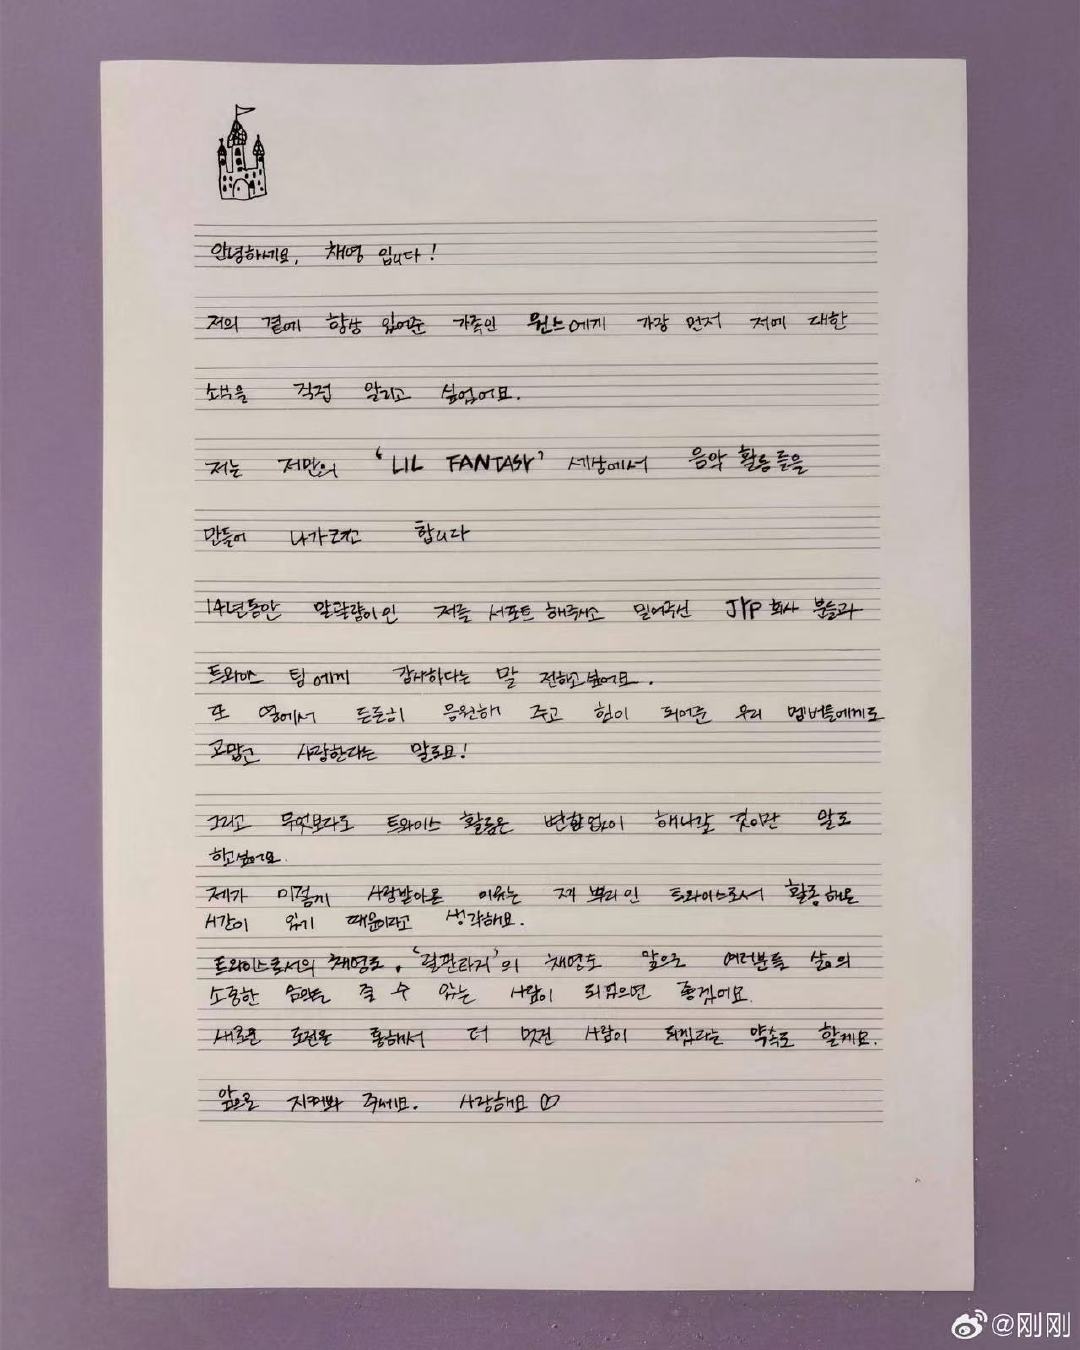 안녕하세요, 채영 입니다!
저의 곁에 항상 있어준 가족인 원스에게 가장 먼저 저에 대한
소식을 직접 알리고 싶었어요.
저는 저만의 'LIL FANTASY' 세상에서 음악 활동들을
만들어 나가려고 합니다
14년동안 말괄량이인 저를 서포트 해주시고 밀어주신 JYP 회사 분들과
트와이스 팀에게 감사하다는 말 전하고싶어요.
또 옆에서 든든히 응원해 주고 힘이 되어준 우리 멤버들에게도
고맙고 사랑한다는 말도요!
그리고 무엇보다도 트와이스 활동은 변함없이 해나갈 것이란 말도
하고싶어요.
제가 이렇게 사랑받아온 이유는 제 뿌리인 트와이스로서 활동해온
시간이 있기 때문이라고 생각해요.
트와이스로서의 채영도, '릴판타지'의 채영도 앞으로 여러분들 삶의
소중한 음악을 줄 수 있는 사람이 되었으면 좋겠어요.
새로운 도전을 통해서 더 멋진 사람이 되겠다는 약속도 할게요.
앞으로 지켜봐 주세요. 사랑해요♡
@刚刚